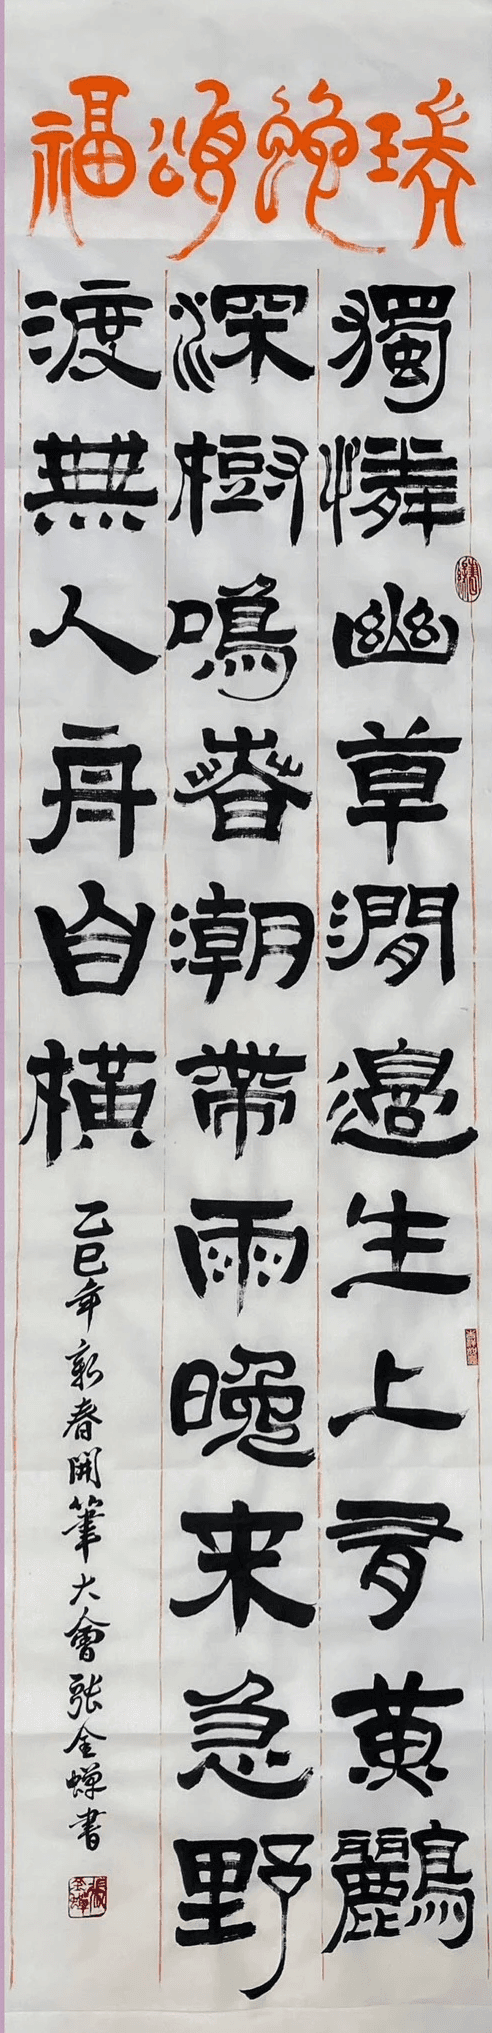 頌福
獨憐幽草澗邊生上有黃鸝
深樹鳴春潮帶雨晚来急野
渡無人舟自橫
乙巳年新春開筆大會張全蟬書